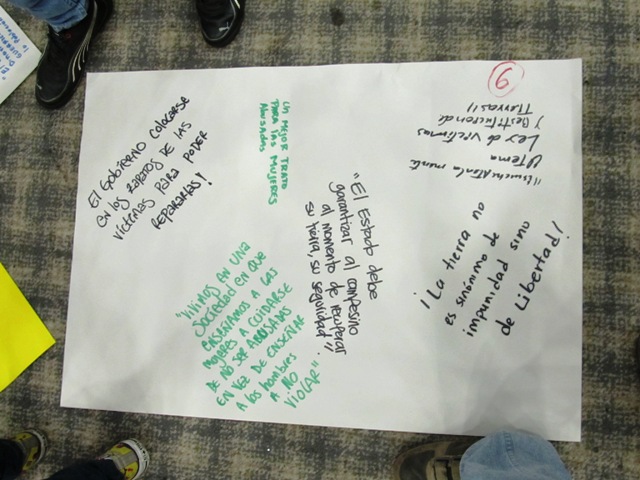 El GOBIERNO COLOCARSE
EN LOS ZAPATOS DE LAS
VÍCTIMAS PARA PODER
REPARARLAS!
UN MEJOR TRATO
PARA lAS MUJERES
Abusadas
"El Estado debe
garantizar al campesino
al momento de recuperar
su tierra, su seguridad"
"VIVIMOS EN UNA
Sociedad EN QUE
ENSEÑAMOS A LAS
MUJERES A CUIDARSE
DE NO SER ABUSADAS
EN VEZ DE ENSEÑAR
A los hombres
A NO
VIOLAR".
9
mente
tema
Ley de victimas
y Restitucion de
Tierras!!
¡La tierra no
es sinónimo de
impunidad sino
de Libertad!